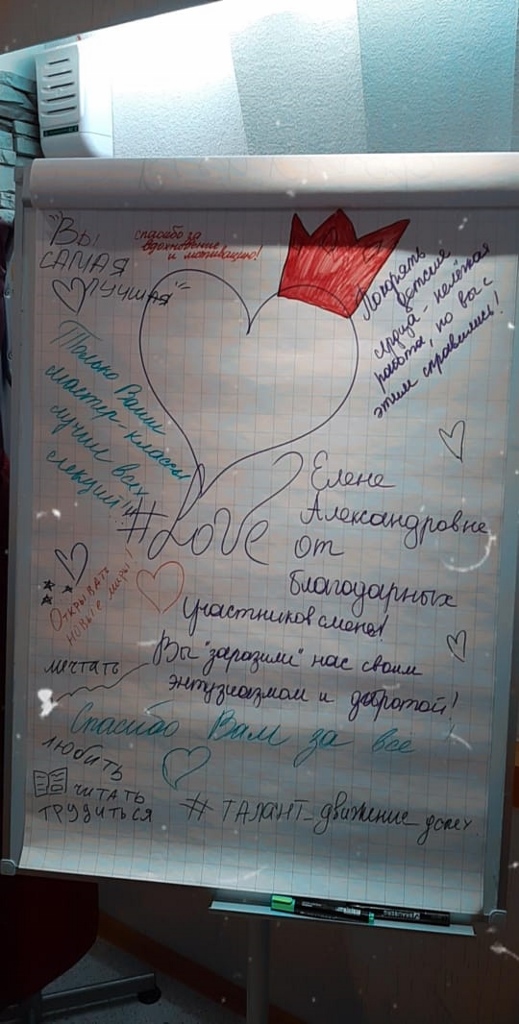 "Вы
САМАЯ
ЛУЧШАЯ"
спасибо за
вдохновение
и мотивацию!
Покорять
детские
сердца - нелёгкая
работа, но вы с
этим справились!
Только Ваши
мастер-классы
лучше всех
лекций!!!
#Love
Елене
Александровне
от
благодарных
участников смены!
Открывать
новые миры!
Вы "заразили" нас своим
энтузиазмом и добротой!
мечтать
Спасибо Вам за всё
любить
читать
трудиться
# ТАЛАНТ_движение_успех